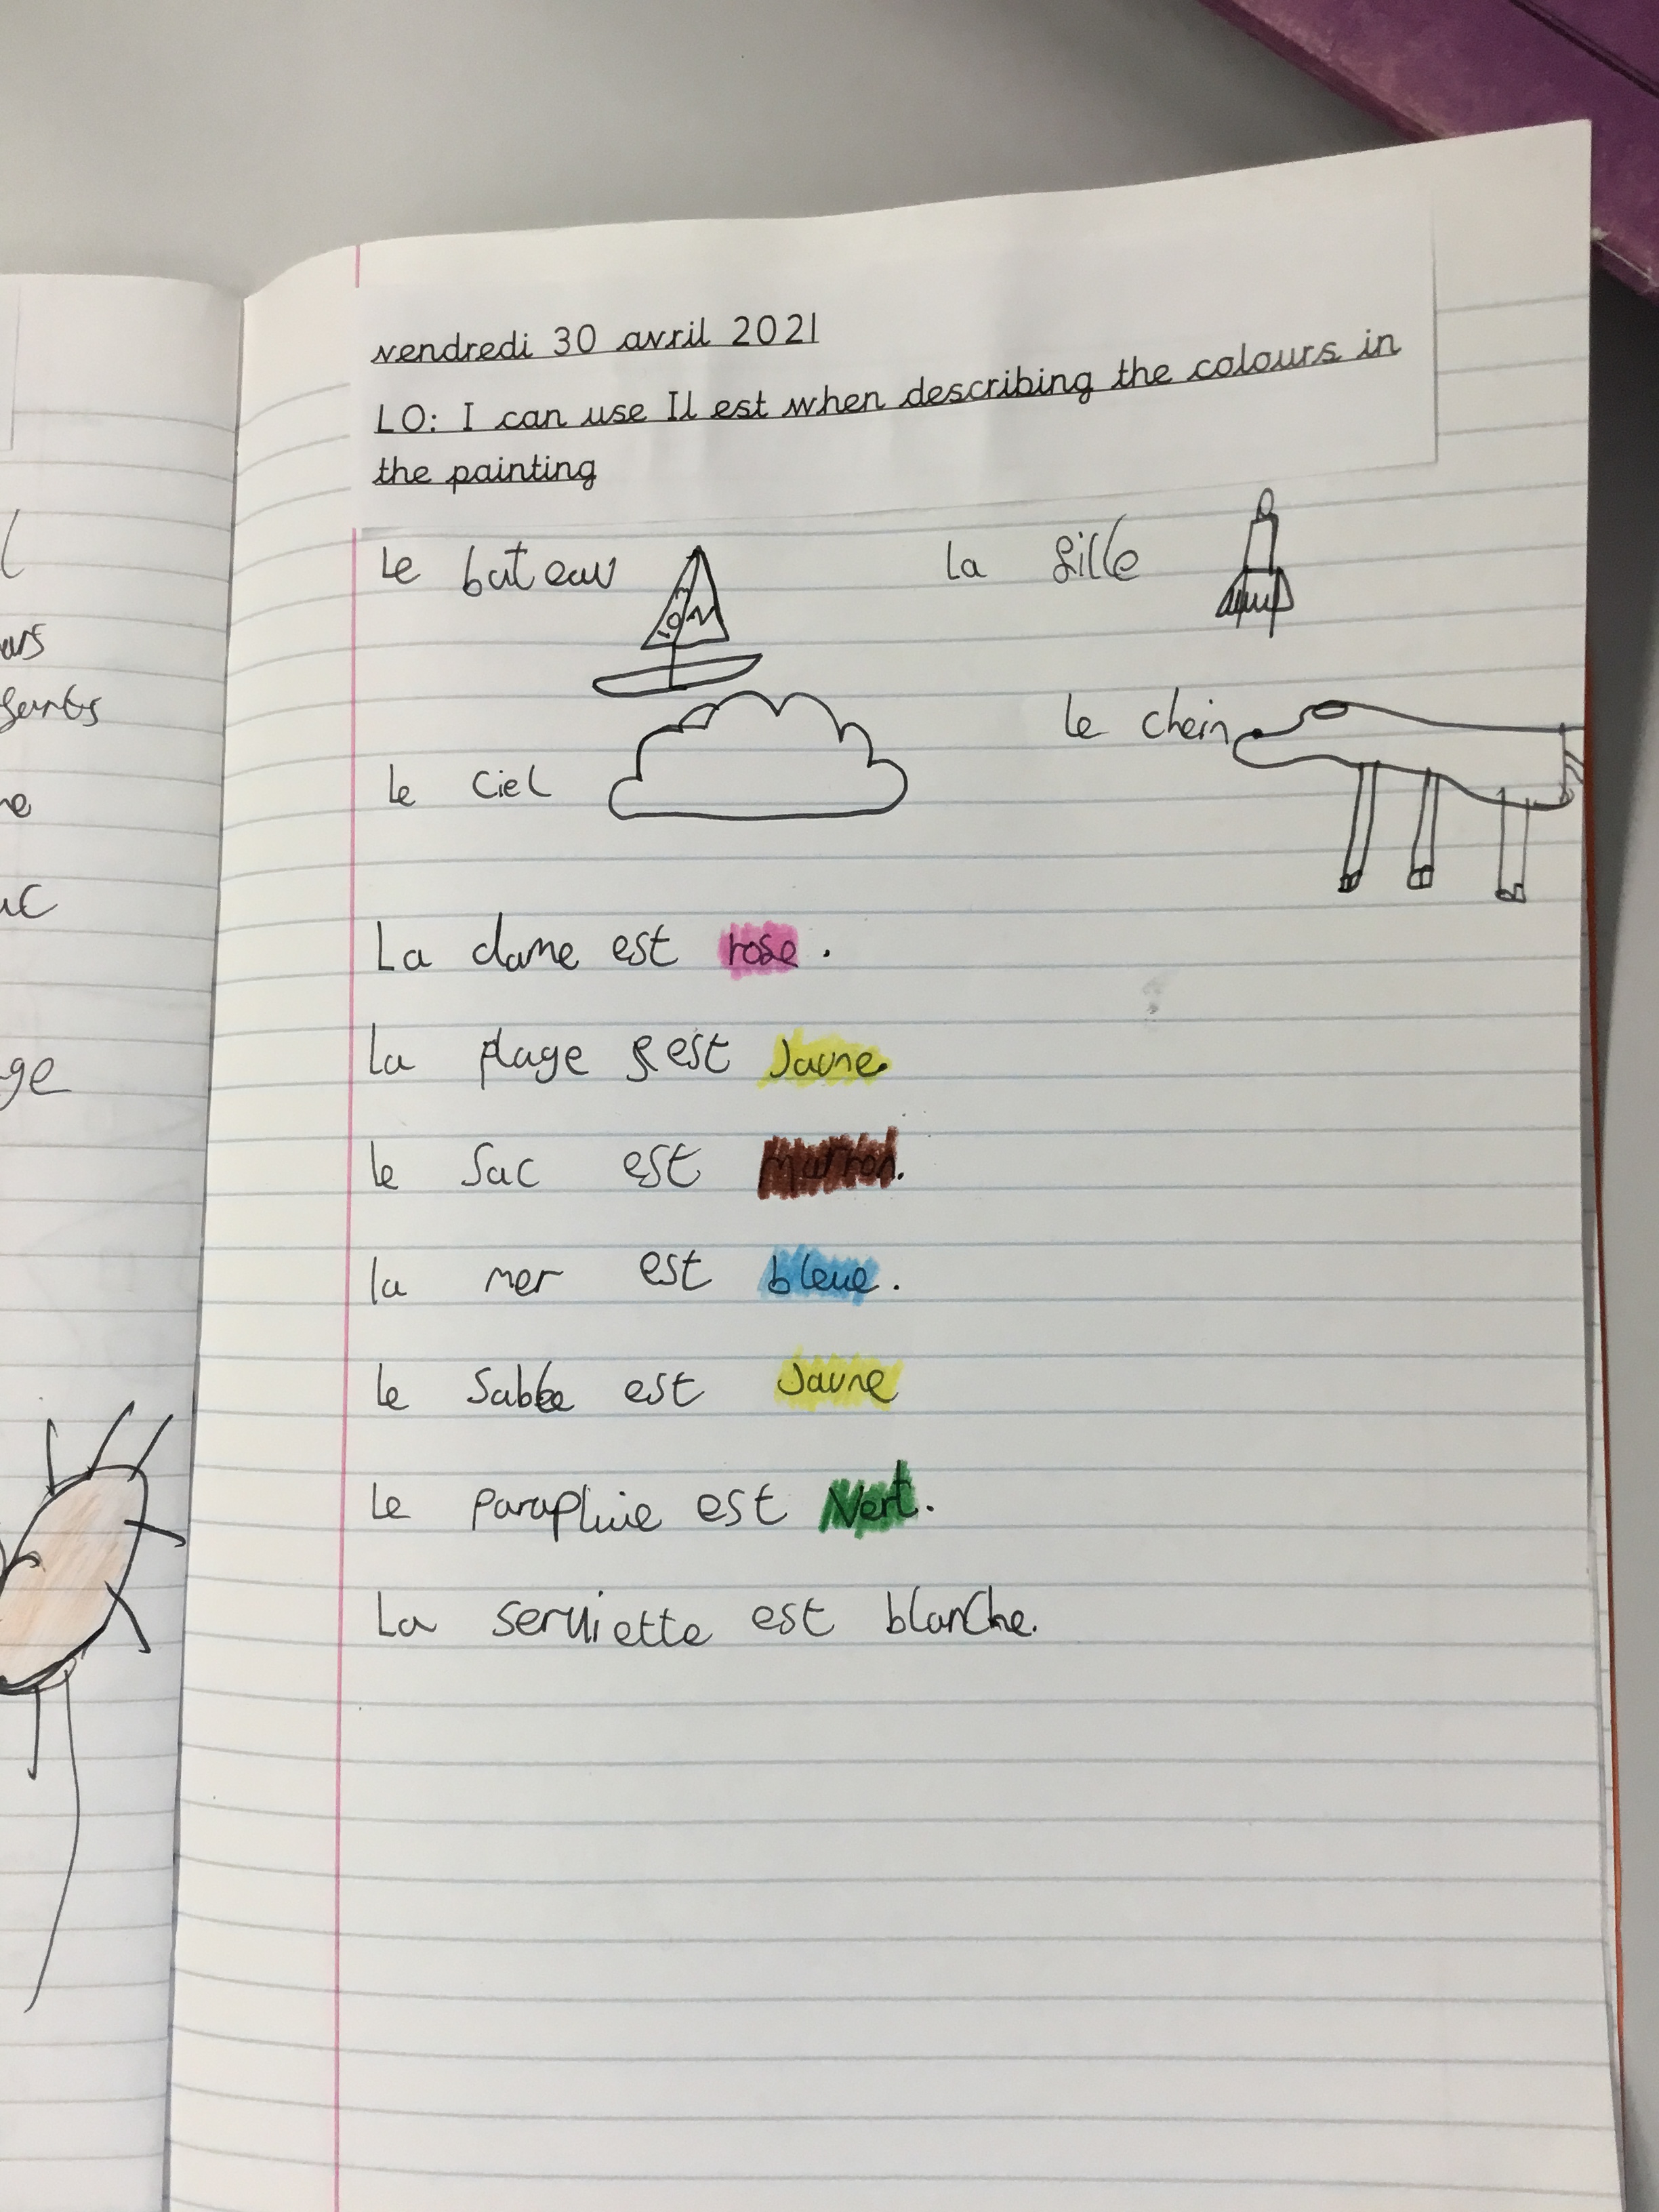 vendredi 30 avril 2021
LO: I can use Il est when describing the colours in
the painting
le bateau
la fille
le chein
le ciel
La dame est rose.
la plage est Jaune.
le Sac est marron.
la mer est bleue.
le Sable est Jaune
le parapluie est Vert.
La serviette est blanche.